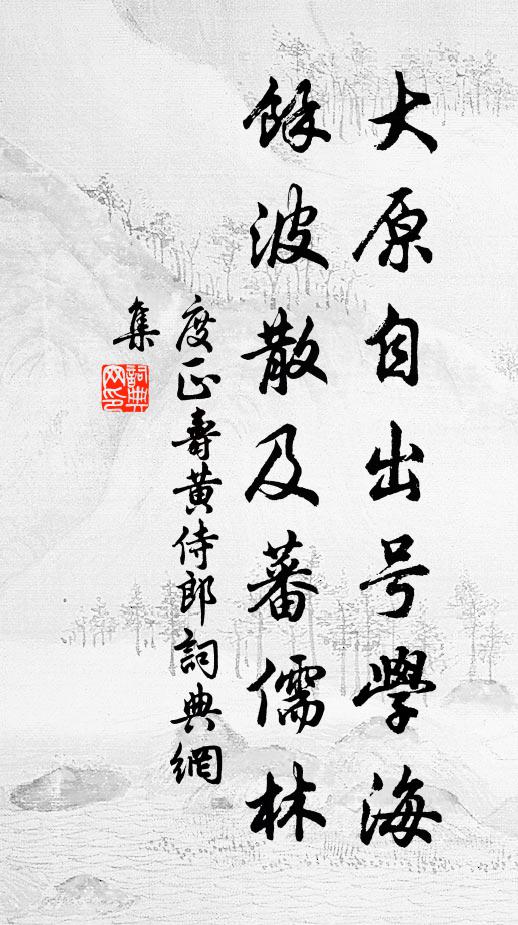 大原自出号學海
餘波散及蕃儒林
度正壽黃侍郎詞典網
集
詞典網印